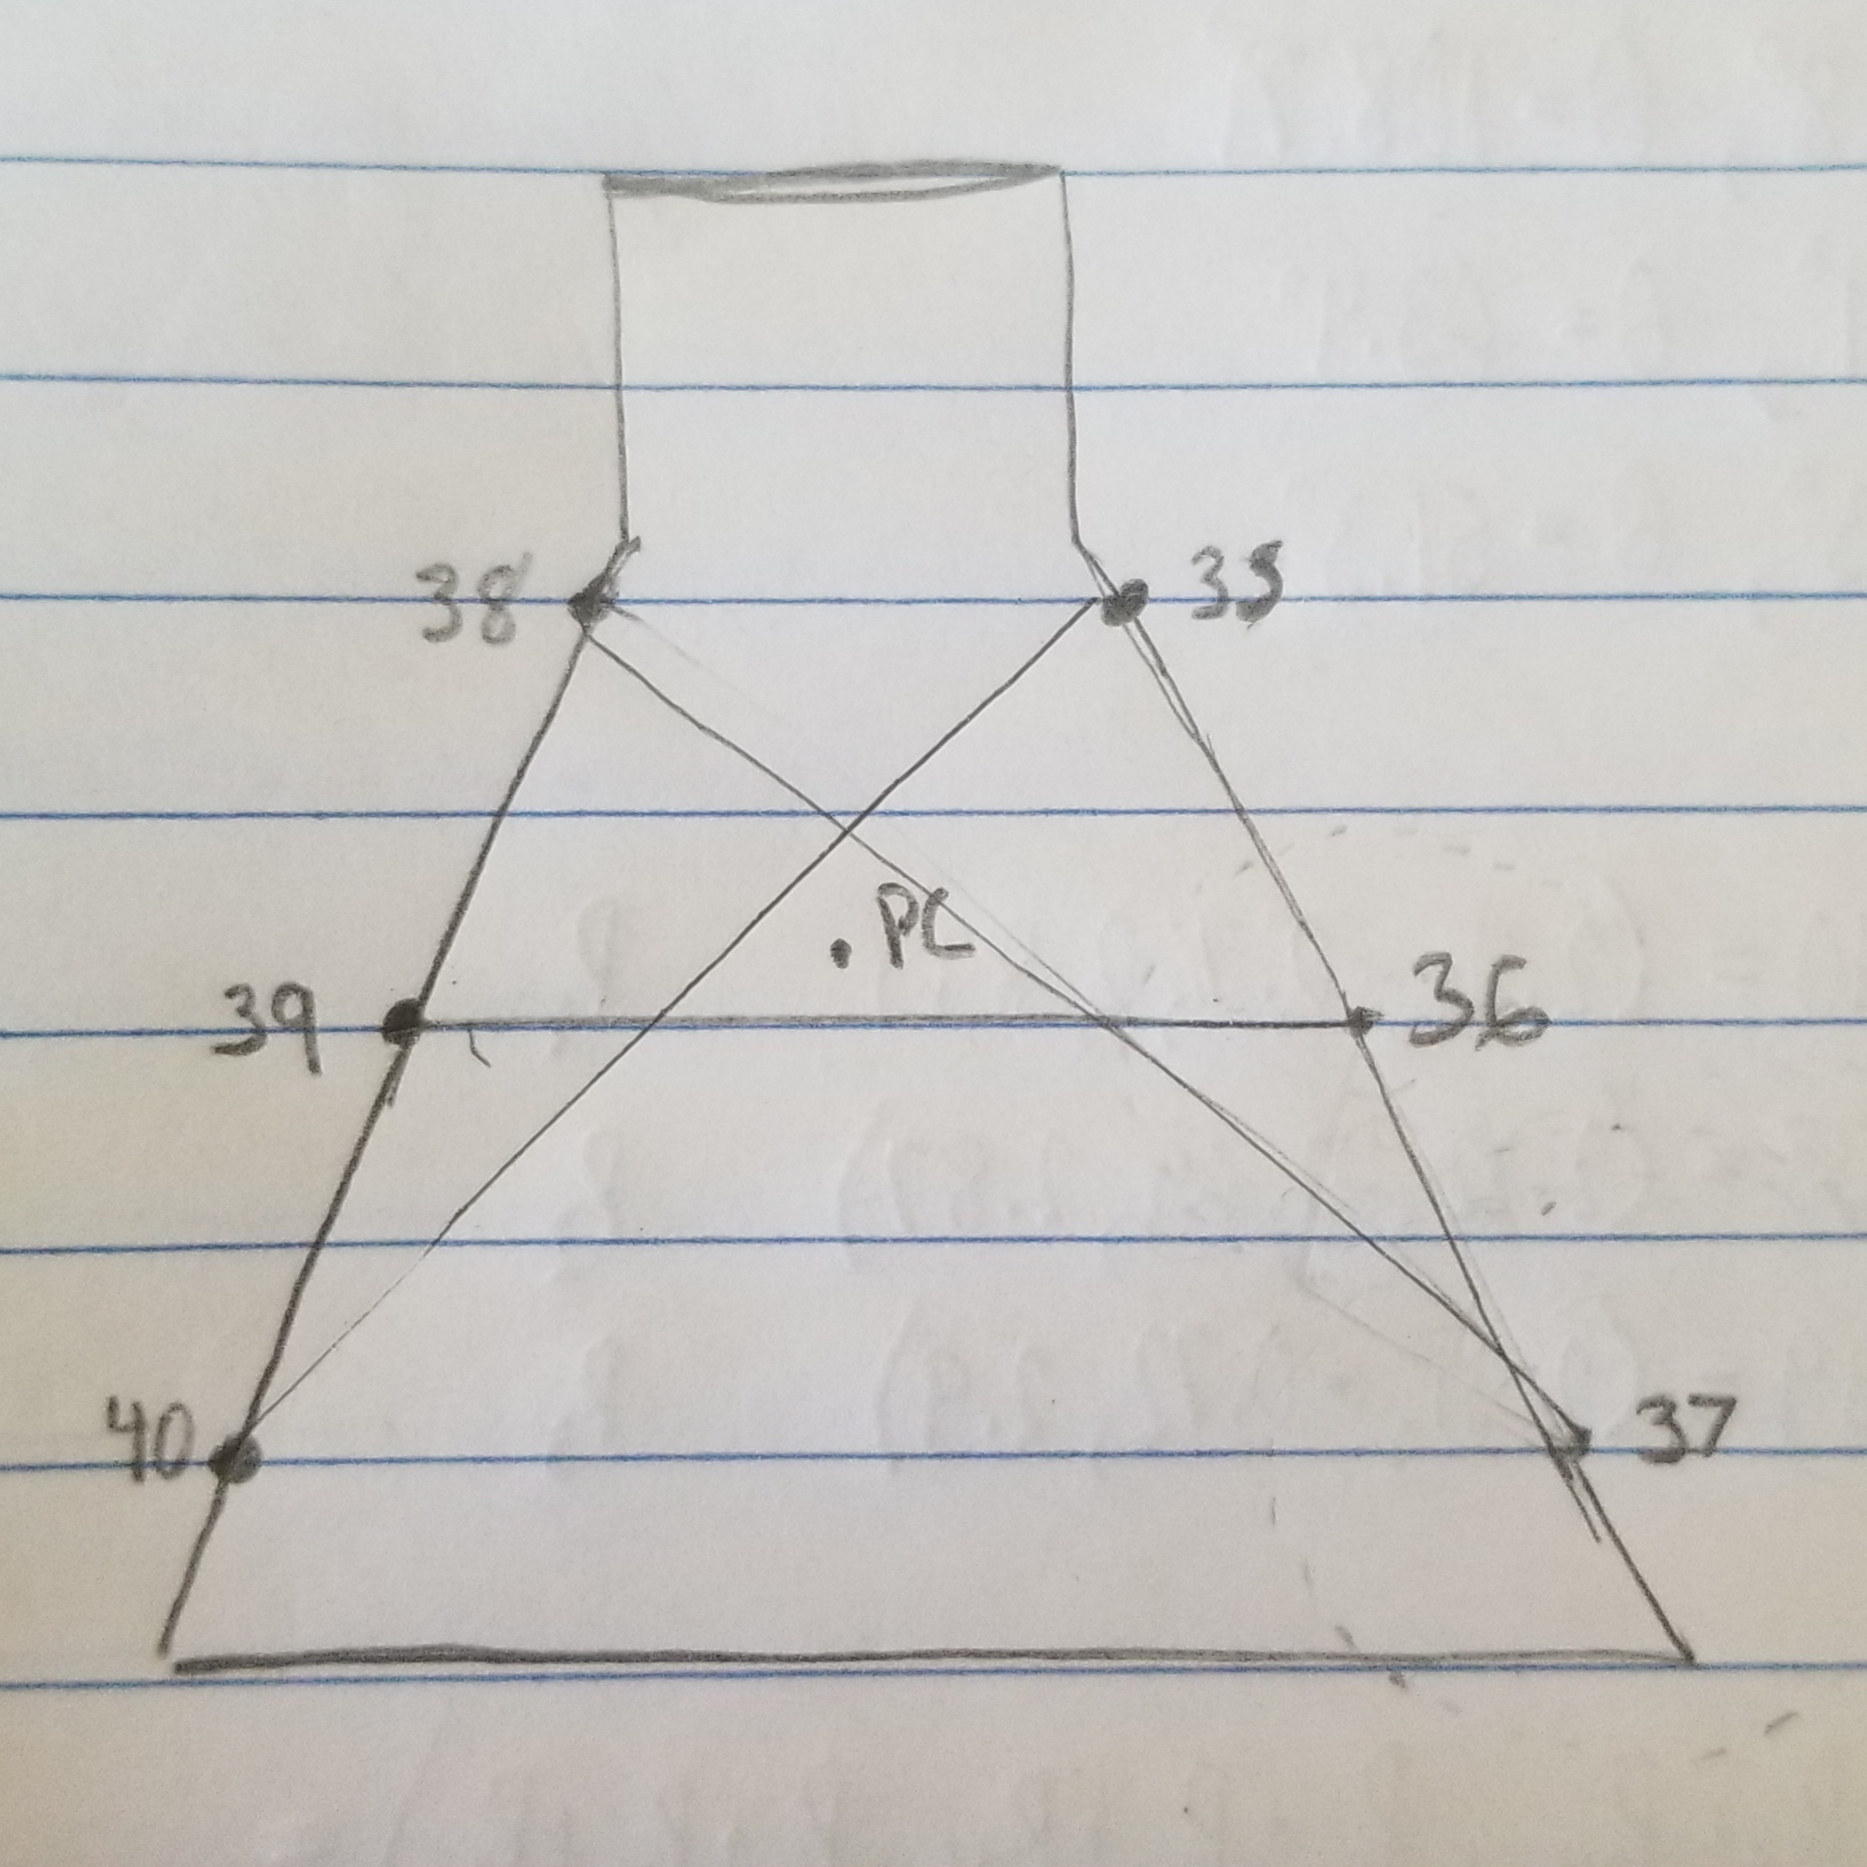 38 35
PC
39 36
40 37